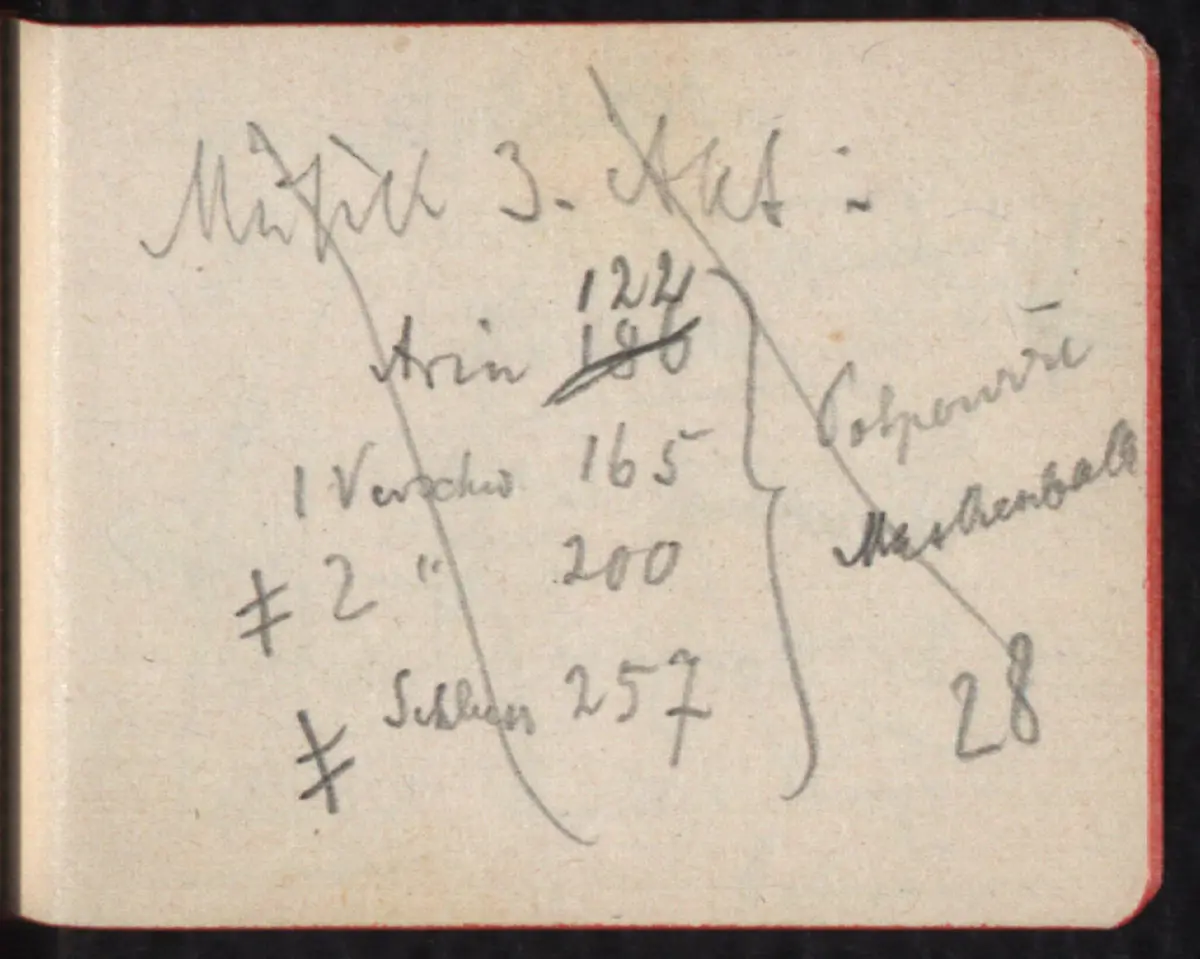 Musik 3. Akt :
122
Arie 186
1 Verschw 165
‡ 2 " 200
‡ Schluss 257
Potpourri
Maskenball
28